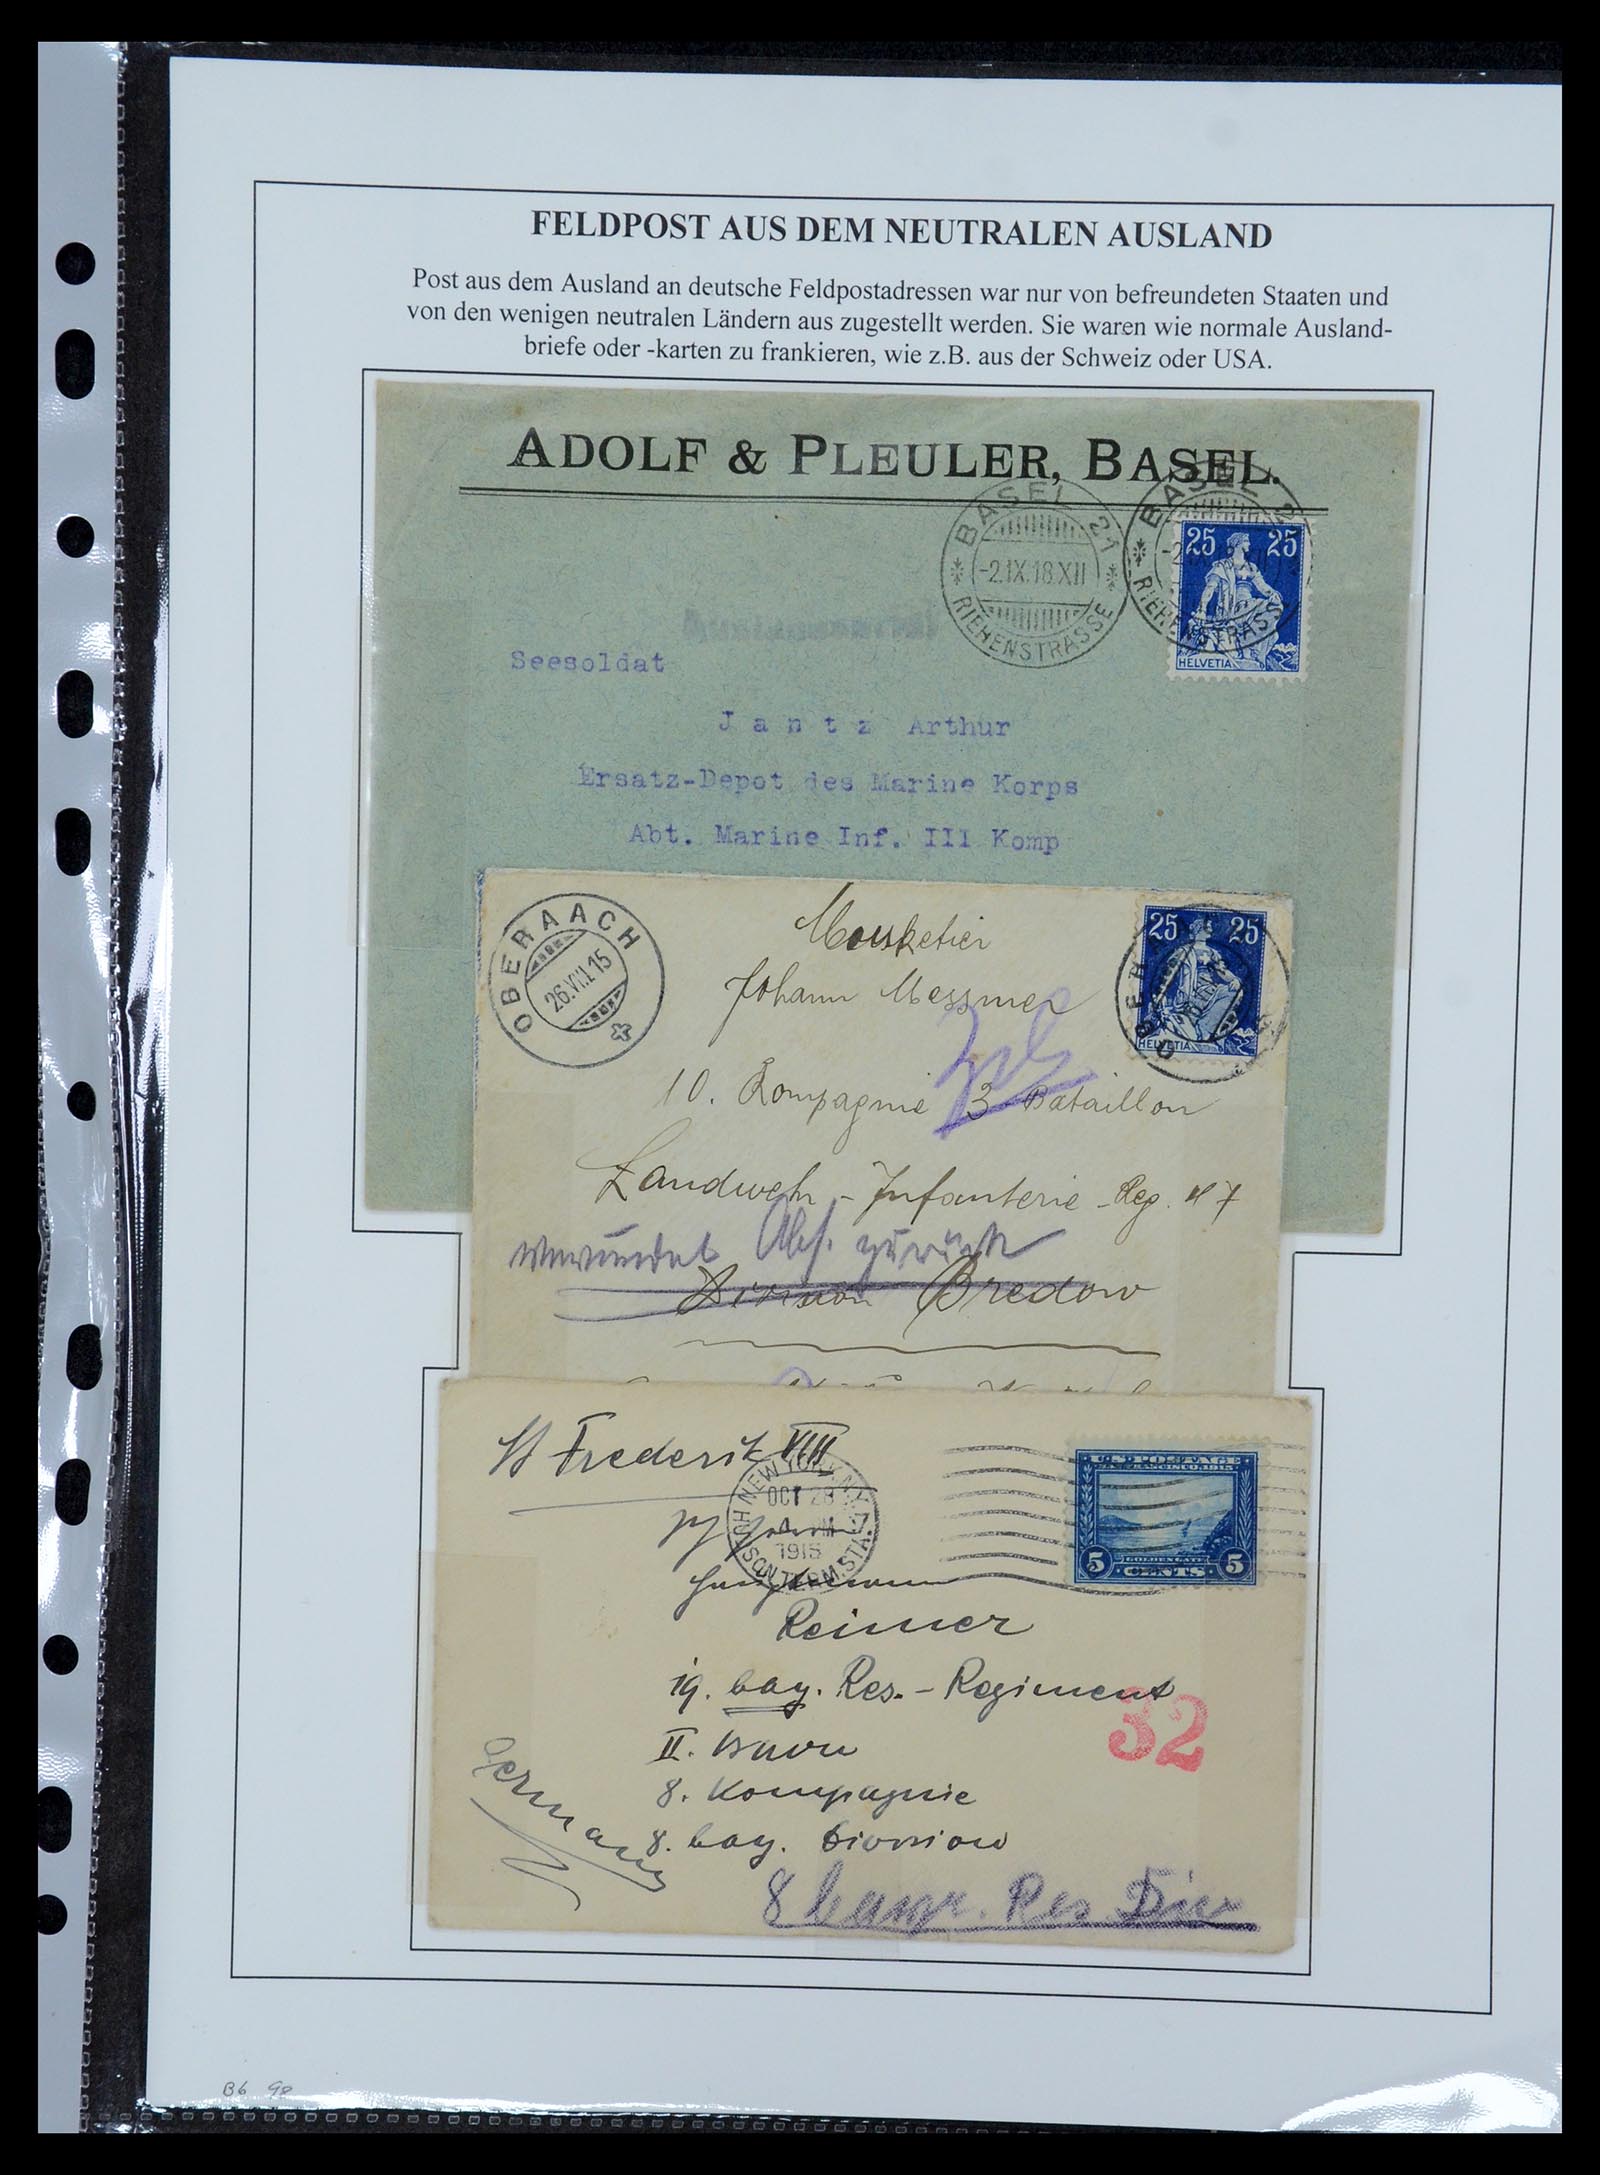 FELDPOST AUS DEM NEUTRALEN AUSLAND
Post aus dem Ausland an deutsche Feldpostadressen war nur von befreundeten Staaten und
von den wenigen neutralen Ländern aus zugestellt werden. Sie waren wie normale Ausland-
briefe oder -karten zu frankieren, wie z.B. aus der Schweiz oder USA.
ADOLF & PLEULER, BASEL.
BASEL 21
-2.IX.18.XII
RIEHENSTRASSE
BASEL 2
RIEHENSTRASSE
25 25
HELVETIA
Seesoldat
Jantz Arthur
Ersatz-Depot des Marine Korps
Abt. Marine Inf. III Komp
OBERAACH
26.VIII.15
25 25
HELVETIA
Mousketier
Johann Messmer
10. Kompagnie 3 Bataillon
Landwehr-Infanterie-Reg. 47
verwundet Abs. zurück
Division Bredow
SS Frederik VIII
NEW YORK, N.Y.
OCT 28
PM
1915
HUDSON TERM. STA.
U.S. POSTAGE
SAN FRANCISCO, 1915
5 GOLDEN GATE 5
CENTS
Hauptmann
Reimer
19. bay. Res.-Regiment
II.
8. Kompagnie
8. bay. Division
Germany
32
8 bayr. Res. Div
B6 90